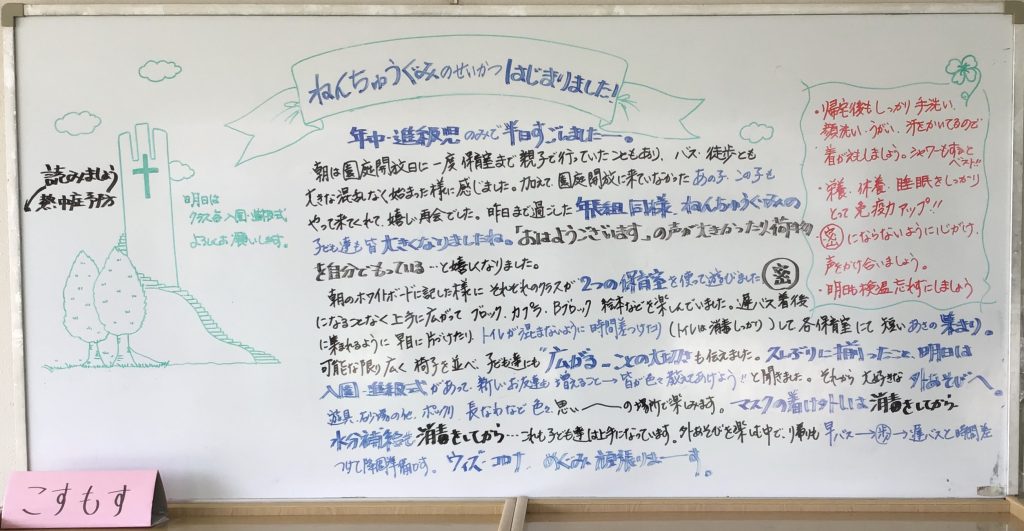 ねんちゅうぐみのせいかつ はじまりました!
年中・進級児のみで半日すごしましたー。
朝は園庭開放日に一度保育室まで親子で行っていたこともあり、バス・徒歩とも
大きな混乱なく始まった様に感じました。加えて、園庭開放に来ていなかったあの子、この子も
やって来てくれて、嬉しい再会でした。昨日まで過ごした年長組同様、ねんちゅうぐみの
子ども達も皆大きくなりましたね。「おはようございます」の声が大きかったり荷物
を自分でもっている…と嬉しくなりました。
朝のホワイトボードに記した様に それぞれのクラスが2つの保育室を使って遊びました 密
になることなく上手に広がって ブロック、カプラ、Bブロック 絵本などを楽しんでいました。遅バス着後
に集まれるように 早目に片づけたり トイレが混まないように時間差つけたり(トイレは消毒しっかり)して各保育室にて 短いあさの集まり。
可能な限り広く 椅子を並べ、子ども達にも"広がる"ことの大切さも伝えました。久しぶりに揃ったこと、明日は
入園・進級式があって、新しいお友達も増えること→皆が色々教えてあげよう!!と聞きました。それから 大好きな 外あそびへ。
遊具、砂場の他、ポックリ 長なわなど色々、思い〜の場所で楽しみます。マスクの着け外しは 消毒をしてから
水分補給も 消毒をしてから…これも子ども達は上手になっています。外あそびを楽しむ中で、帰りも 早バス→歩→遅バスと時間差
つけて降園準備です。ウィズ・コロナ、めぐみ 頑張りまーす。
読みましょう
熱中症予防
明日は
クラス毎 入園・進級式
よろしくお願いします。
・帰宅後もしっかり手洗い、
顔洗い・うがい、汗をかいてるので
着がえもしましょう。シャワーもするとベスト!!
・栄養・休養・睡眠をしっかり
とって 免疫力アップ!!
・密にならないように心がけ、
声をかけ合いましょう。
・明日も検温忘れずにしましょう
こすもす